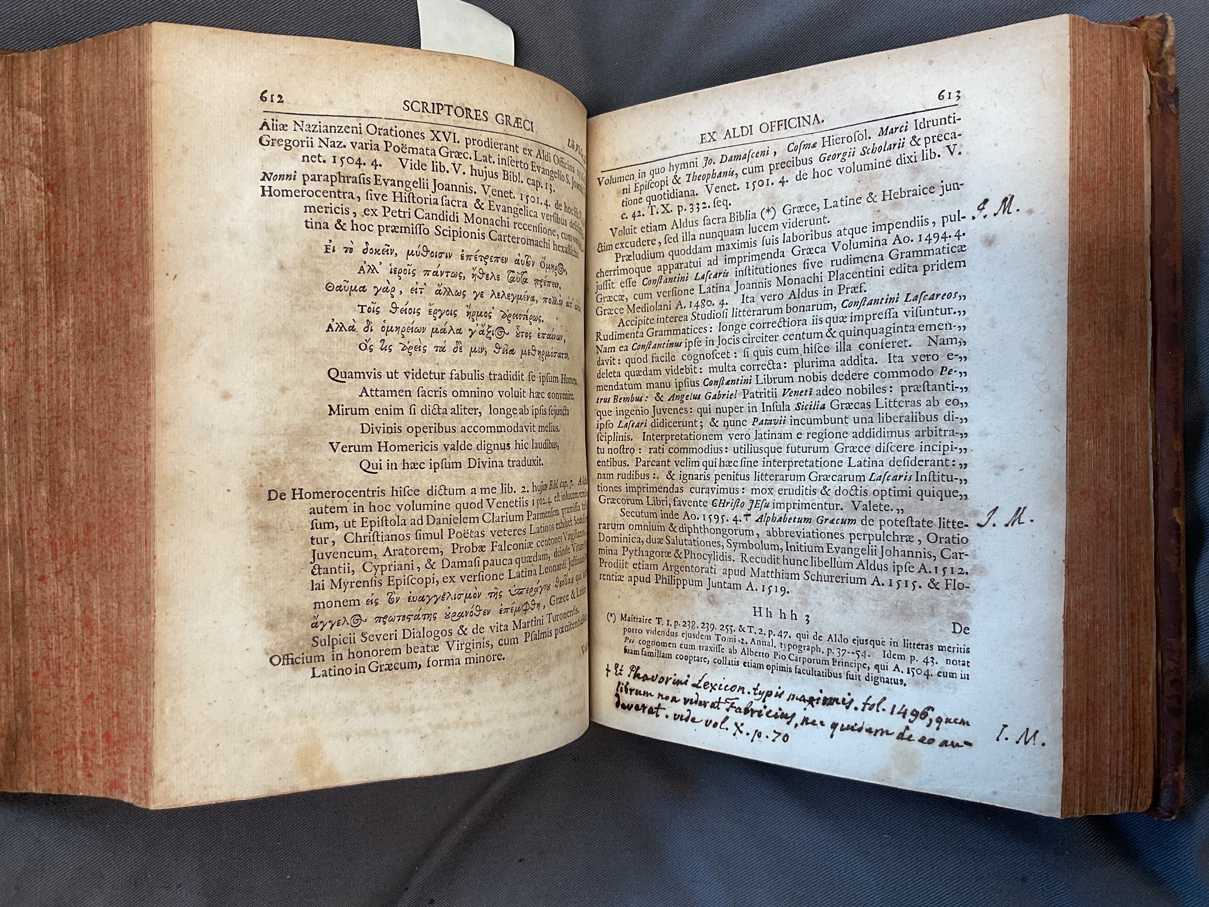 612
SCRIPTORES GRÆCI
Aliæ Nazianzeni Orationes XVI. prodierant ex Aldi
Gregorii Naz. varia Poëmata Græc. Lat. inserto Evangelio S.
net. 1504. 4. Vide lib. V. hujus Bibl. cap. 13.
Nonni paraphrasis Evangelii Joannis. Venet. 1501. 4. de hoc
Homerocentra, sive Historia sacra & Evangelica versibus
mericis, ex Petri Candidi Monachi recensione, cum
tina & hoc præmisso Scipionis Carteromachi
Εἰ τὸ δοκεῖν, μύθοισιν ἐπέτρεπεν αὑτὸν Ὅμηρος,
Ἀλλ' ἱεροῖς πάντως, ἤθελε ταῦτα
Θαῦμα γὰρ, εἴτ' ἄλλως γε λελεγμένα,
Τοῖς θείοις ἔργοις ἥρμος
Ἀλλὰ δὴ ὁμηρείων μάλα γ' ἄξιος οὗτος ἐπαίνων,
Ὃς εἰς τὰ δέ μιν, θεῖα μεθηρμόσατο.
Quamvis ut videtur fabulis tradidit se ipsum
Attamen sacris omnino voluit hæc convenire.
Mirum enim si dicta aliter, longe ab ipsis sejuncta
Divinis operibus accommodavit melius.
Verum Homericis valde dignus hic laudibus,
Qui in hæc ipsum Divina traduxit.
De Homerocentris hisce dictum a me lib. 2. hujus Bibl. cap. 7.
autem in hoc volumine quod Venetiis
sum, ut Epistola ad Danielem Clarium Parmensem
tur, Christianos simul Poëtas veteres Latinos
Juvencum, Aratorem, Probæ Falconiæ centones
ctantii, Cypriani, & Damasi pauca quædam, deinde
lai Myrensis Episcopi, ex versione Latina Leonardi
monem εἰς τὸν εὐαγγελισμὸν τῆς
ἄγγελος πρωτοστάτης οὐρανόθεν ἐπέμφθη, Græce &
Sulpicii Severi Dialogos & de vita Martini Turonensis.
Officium in honorem beatæ Virginis, cum Psalmis
Latino in Græcum, forma minore.
613
EX ALDI OFFICINA.
Volumen in quo hymni Jo. Damasceni, Cosmæ Hierosol. Marci Idrunti-
ni Episcopi & Theophanis, cum precibus Georgii Scholarii & preca-
tione quotidiana. Venet. 1501. 4. de hoc volumine dixi lib. V.
c. 42. T. X. p. 332. seq.
Voluit etiam Aldus sacra Biblia (*) Græce, Latine & Hebraice jun-
ctim excudere, sed illa nunquam lucem viderunt.
J. M.
Præludium quoddam maximis suis laboribus atque impendiis, pul-
cherrimoque apparatui ad imprimenda Græca Volumina Ao. 1494. 4.
jussit esse Constantini Lascaris institutiones sive rudimena Grammaticæ
Græcæ, cum versione Latina Joannis Monachi Placentini edita pridem
Græce Mediolani A. 1480. 4. Ita vero Aldus in Præf.
Accipite interea Studiosi litterarum bonarum, Constantini Lascareos„
Rudimenta Grammatices: longe correctiora iis quæ impressa visuntur.„
Nam ea Constantinus ipse in Jocis circiter centum & quinquaginta emen-„
davit: quod facile cognoscet: si quis cum hisce illa conferet. Nam„
deleta quædam videbit: multa correcta: plurima addita. Ita vero e-„
mendatum manu ipsius Constantini Librum nobis dedere commodo Pe-„
trus Bembus: & Angelus Gabriel Patritii Veneti adeo nobiles: præstanti-„
que ingenio Juvenes: qui nuper in Insula Sicilia Græcas Litteras ab eo„
ipso Lascari didicerunt; & nunc Patavii incumbunt una liberalibus di-„
sciplinis. Interpretationem vero latinam e regione addidimus arbitra-„
tu nostro: rati commodius: utiliusque futurum Græce discere incipi-„
entibus. Parcant velim qui hæc sine interpretatione Latina desiderant:„
nam rudibus: & ignaris penitus litterarum Græcarum Lascaris Institu-„
tiones imprimendas curavimus: mox eruditis & doctis optimi quique„
Græcorum Libri, favente CHristo JEsu imprimentur. Valete.„
Secutum inde Ao. 1595. 4. † Alphabetum Græcum de potestate litte-
J. M.
rarum omnium & diphthongorum, abbreviationes perpulchræ, Oratio
Dominica, duæ Salutationes, Symbolum, Initium Evangelii Johannis, Car-
mina Pythagoræ & Phocylidis. Recudit hunc libellum Aldus ipse A. 1512.
Prodiit etiam Argentorati apud Matthiam Schurerium A. 1515. & Flo-
rentiæ apud Philippum Juntam A. 1519.
Hhhh 3
De
(*) Maittaire T. 1. p. 238. 239. 255. & T. 2. p. 47. qui de Aldo ejusque in litteras meritis
porro videndus ejusdem Tomi 2. Annal. typograph. p. 37--54. Idem p. 43. notat
Pii cognomen eum traxisse ab Alberto Pio Carporum Principe, qui A. 1504. eum in
suam familiam cooptare, collatis etiam opimis facultatibus suit dignatus.
† Et Phavorini Lexicon. typis maximis. fol. 1496, quem
librum non viderat Fabricius, nec quidem de eo au-
diverat. vide vol. X. p. 70
I. M.